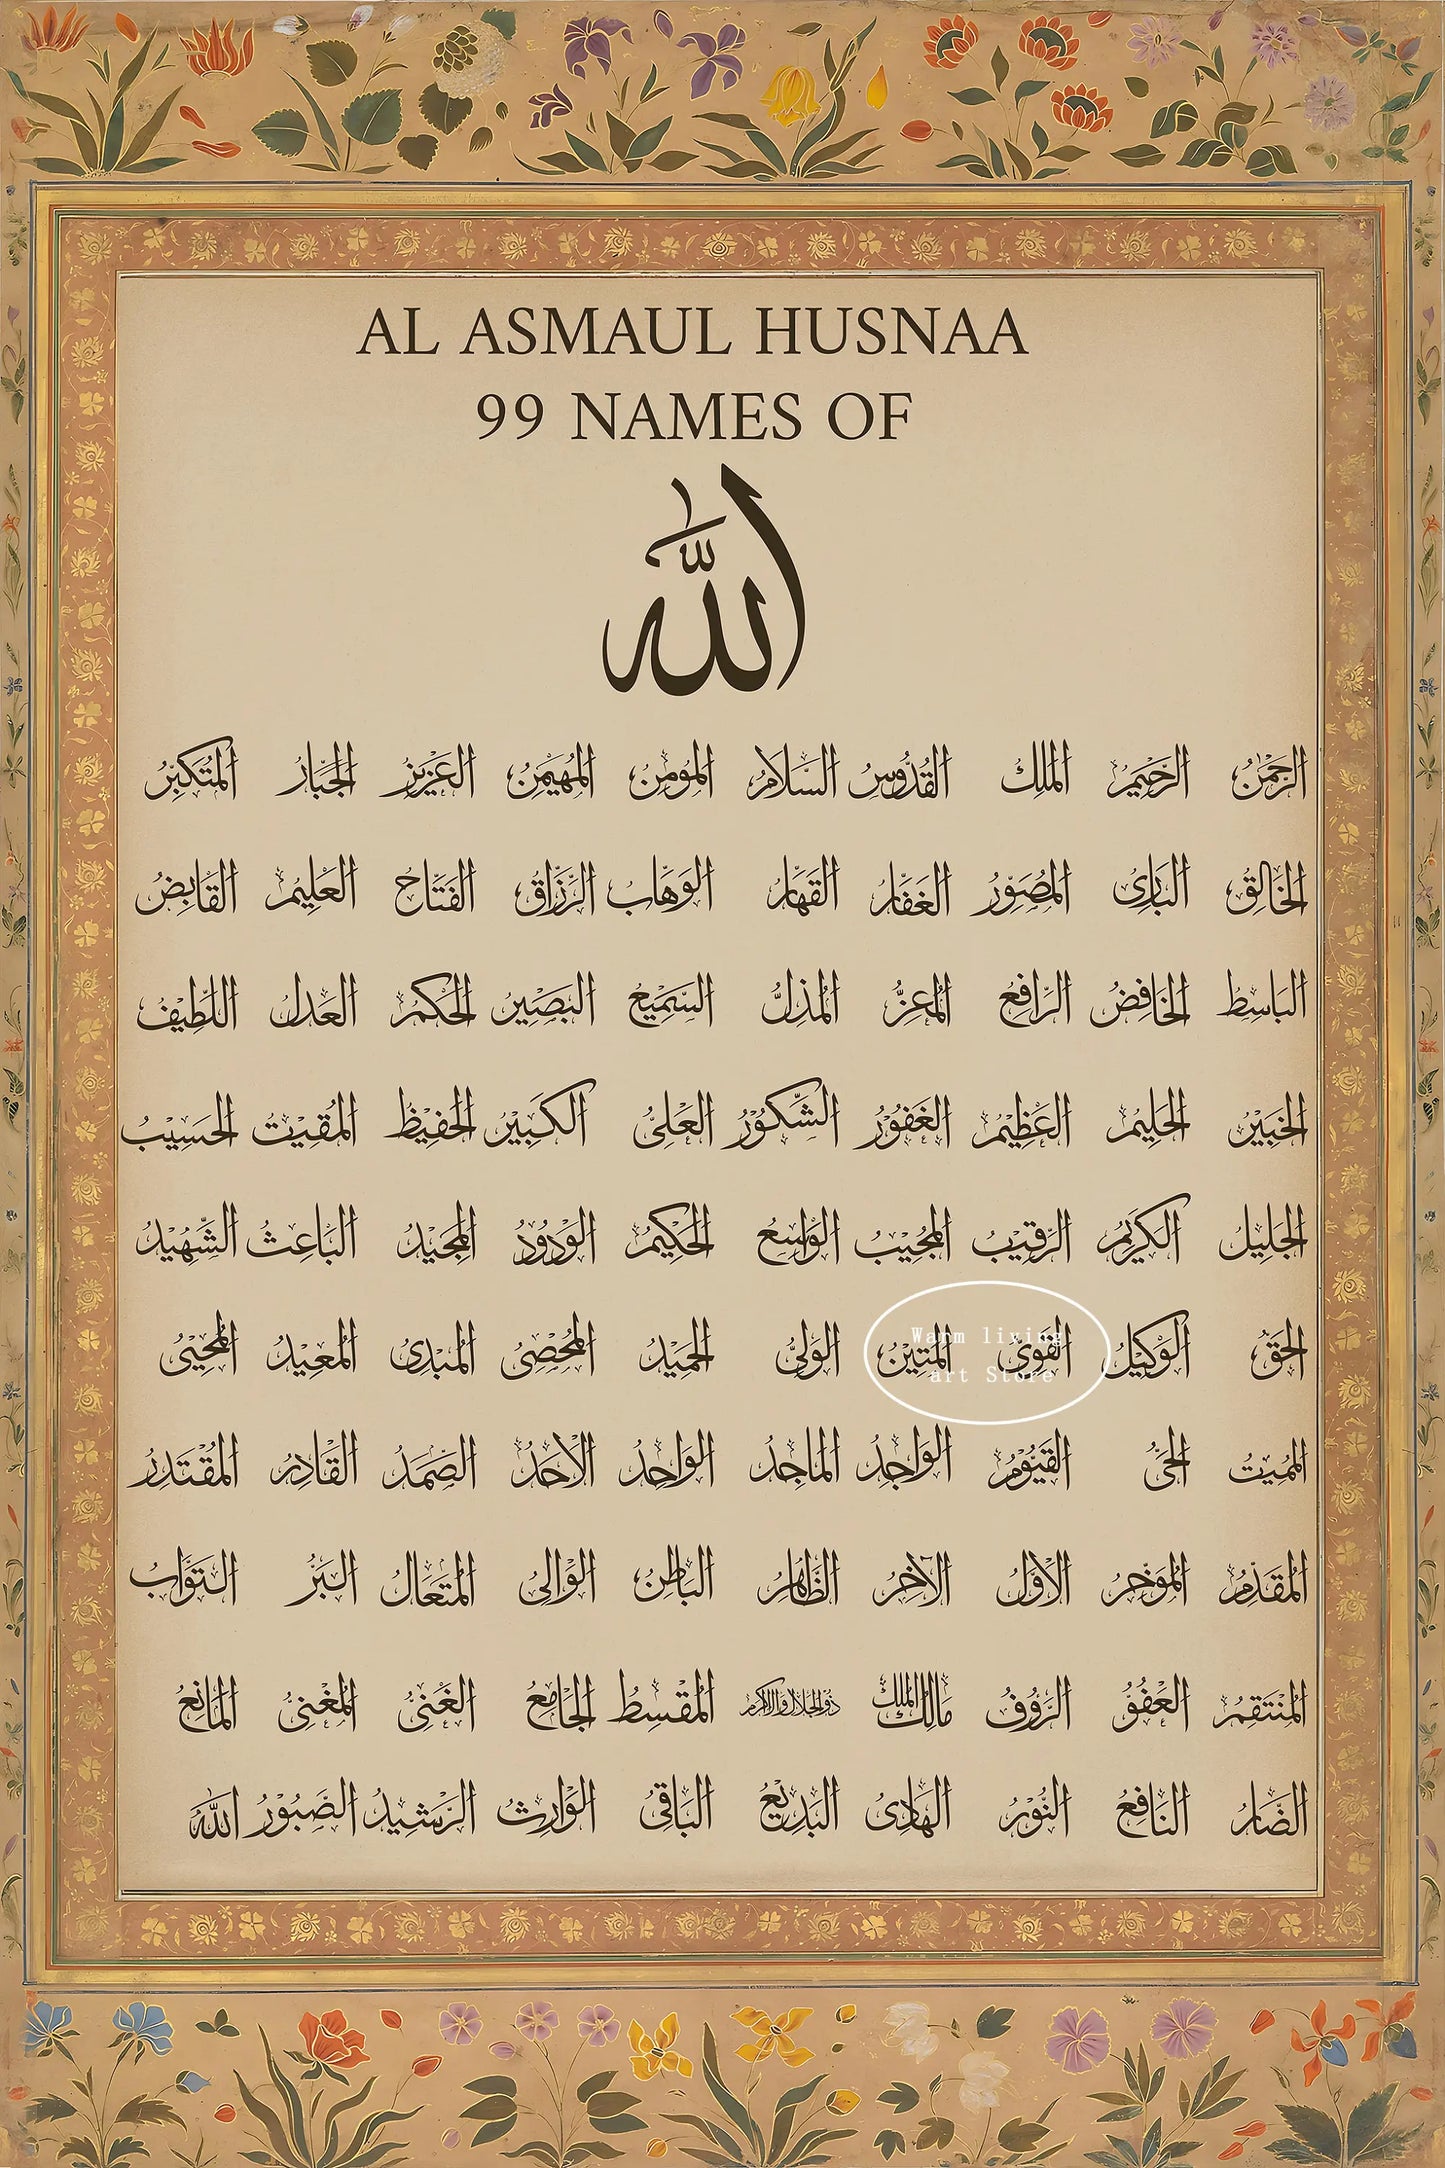 AL ASMAUL HUSNAA
99 NAMES OF
الله
الرَّحْمٰنُ الرَّحِيْمُ المَلِكُ القُدُّوسُ السَّلَامُ المُومِنُ المُهَيْمِنُ العَزِيْزُ الجَبَّارُ المُتَكَبِّرُ
الخَالِقُ البَارِئُ المُصَوِّرُ الغَفَّارُ القَهَّارُ الوَهَّابُ الرَّزَّاقُ الفَتَّاحُ العَلِيْمُ القَابِضُ
البَاسِطُ الخَافِضُ الرَّافِعُ المُعِزُّ المُذِلُّ السَّمِيْعُ البَصِيْرُ الحَكَمُ العَدْلُ اللَّطِيْفُ
الخَبِيْرُ الحَلِيْمُ العَظِيْمُ الغَفُوْرُ الشَّكُوْرُ العَلِىُّ الكَبِيْرُ الحَفِيْظُ المُقِيْتُ الحَسِيْبُ
الجَلِيْلُ الكَرِيْمُ الرَّقِيْبُ المُجِيْبُ الوَاسِعُ الحَكِيْمُ الوَدُوْدُ المَجِيْدُ البَاعِثُ الشَّهِيْدُ
الحَقُّ الوَكِيْلُ القَوِىُّ المَتِيْنُ الوَلِىُّ الحَمِيْدُ المُحْصِىُ المُبْدِئُ المُعِيْدُ المُحْيِىُ
Warm living
art Store
المُمِيْتُ الحَىُّ القَيُّوْمُ الوَاجِدُ المَاجِدُ الوَاحِدُ الأَحَدُ الصَّمَدُ القَادِرُ المُقْتَدِرُ
المُقَدِّمُ المُوَخِّرُ الأَوَّلُ الآخِرُ الظَّاهِرُ البَاطِنُ الوَالِى المُتَعَالُ البَرُّ التَّوَّابُ
المُنْتَقِمُ العَفُوُّ الرَّؤُفُ مَالِكُ المُلْكِ ذُوالجَلَالِ وَالإِكْرَامِ المُقْسِطُ الجَامِعُ الغَنِىُّ المُغْنِىُ المَانِعُ
الضَّارُ النَّافِعُ النُّوْرُ الهَادِى البَدِيْعُ البَاقِى الوَارِثُ الرَّشِيْدُ الصَّبُوْرُ الله